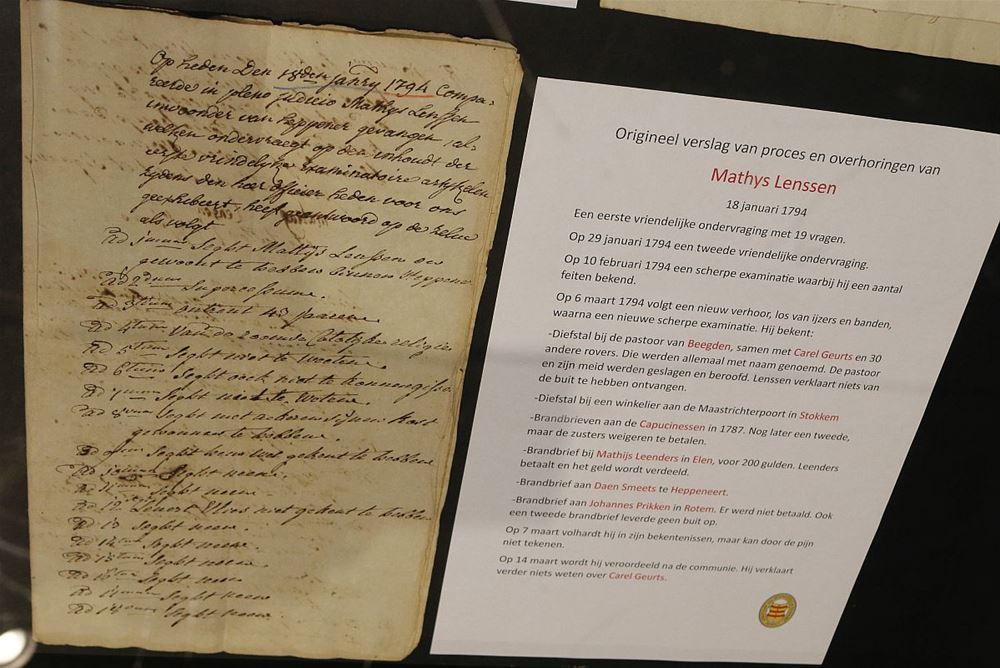 Op heden Den 18den janry 1794 Compa-
reerde in pleno judicio Mathijs Lenssen
inwoonder van heppener gevangen al
welken ondervraegt op den inhoudt der
eerste vriendelijke Examinatoire artijkelen
tydens den heer officier heden voor ons
geexhibeert heeft geantwoord op de zelve
als volgt
Ad Seght Mathijs Lenssen en
gewoont te hebben binnen Heppener
Ad 2dum
Ad 3tium ontrent 43 jaeren
Ad 4tum van de roomse Catolyke religie
Ad 5tum Seght niet te weeten.
Ad 6tum Seght oock niet te
Ad Seght niet te weten.
Ad Seght met arbeyden sijnen kost
gewonnen te hebben.
Ad Seght wel gekent te hebben
Ad Seght neen.
Ad 11 Seght neen
Ad 12 niet gekent te hebben
Ad 13 Seght neen.
Ad 14 Seght neen.
Ad 15 Seght neen.
Ad 16 Seght neen
Ad Seght neen
Ad Seght neen.
Origineel verslag van proces en overhoringen van
Mathys Lenssen
18 januari 1794
Een eerste vriendelijke ondervraging met 19 vragen.
Op 29 januari 1794 een tweede vriendelijke ondervraging.
Op 10 februari 1794 een scherpe examinatie waarbij hij een aantal
feiten bekend.
Op 6 maart 1794 volgt een nieuw verhoor, los van ijzers en banden,
waarna een nieuwe scherpe examinatie. Hij bekent:
-Diefstal bij de pastoor van Beegden, samen met Carel Geurts en 30
andere rovers. Die werden allemaal met naam genoemd. De pastoor
en zijn meid werden geslagen en beroofd. Lenssen verklaart niets van
de buit te hebben ontvangen.
-Diefstal bij een winkelier aan de Maastrichterpoort in Stokkem
-Brandbrieven aan de Capucinessen in 1787. Nog later een tweede,
maar de zusters weigeren te betalen.
-Brandbrief bij Mathijs Leenders in Elen, voor 200 gulden. Leenders
betaalt en het geld wordt verdeeld.
-Brandbrief aan Daen Smeets te Heppeneert.
-Brandbrief aan Johannes Prikken in Rotem. Er werd niet betaald. Ook
een tweede brandbrief leverde geen buit op.
Op 7 maart volhardt hij in zijn bekentenissen, maar kan door de pijn
niet tekenen.
Op 14 maart wordt hij veroordeeld na de communie. Hij verklaart
verder niets weten over Carel Geurts.